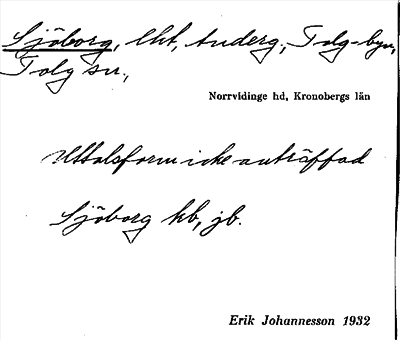 Sjöborg, lht, underg., Tolg-byn,
Tolg sn.,
Norrvidinge hd, Kronobergs län
Uttalsform icke anträffad
Sjöborg kb, jb.
Erik Johannesson 1932